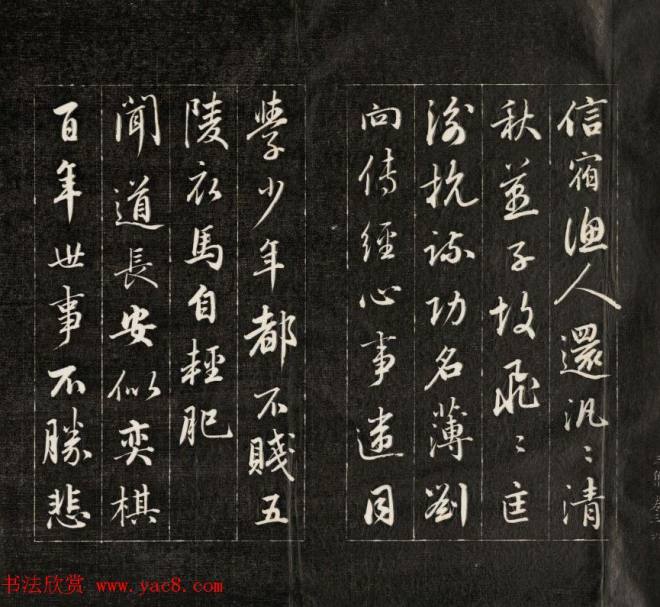 信宿漁人還汎〻清
秋燕子故飛〻匡
衡抗疏功名薄劉
向傳經心事違同
學少年都不賤五
陵衣馬自輕肥
聞道長安似奕棋
百年世事不勝悲
书法欣赏 www.yac8.com